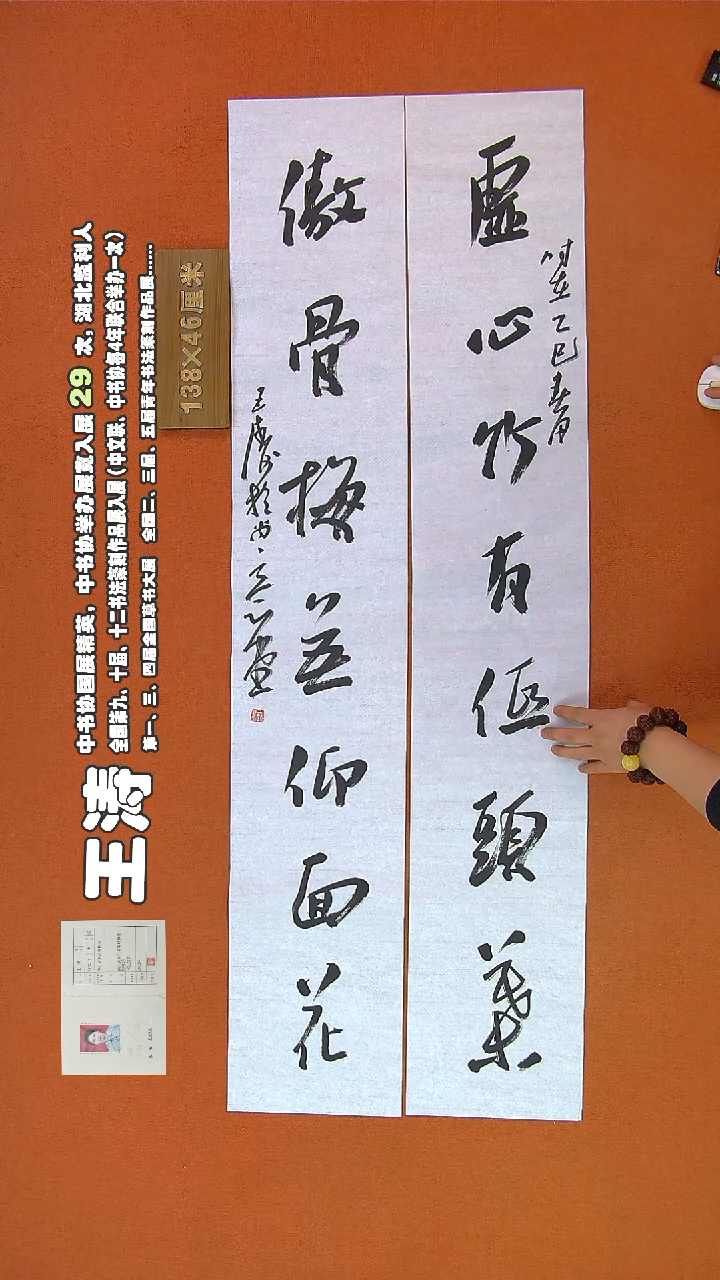 虚心竹有低頭葉
時在乙巳春月
傲骨梅並仰面花
王濤於尚
138×46厘米
中书协国展精英，中书协举办展赛入展 29 次，湖北监利人
全国第九、十届、十二书法篆刻作品展入展（中文联、中书协每4年联合举办一次）
第一、三、四届全国草书大展 全国二、三届、五届青年书法篆刻作品展......
王涛